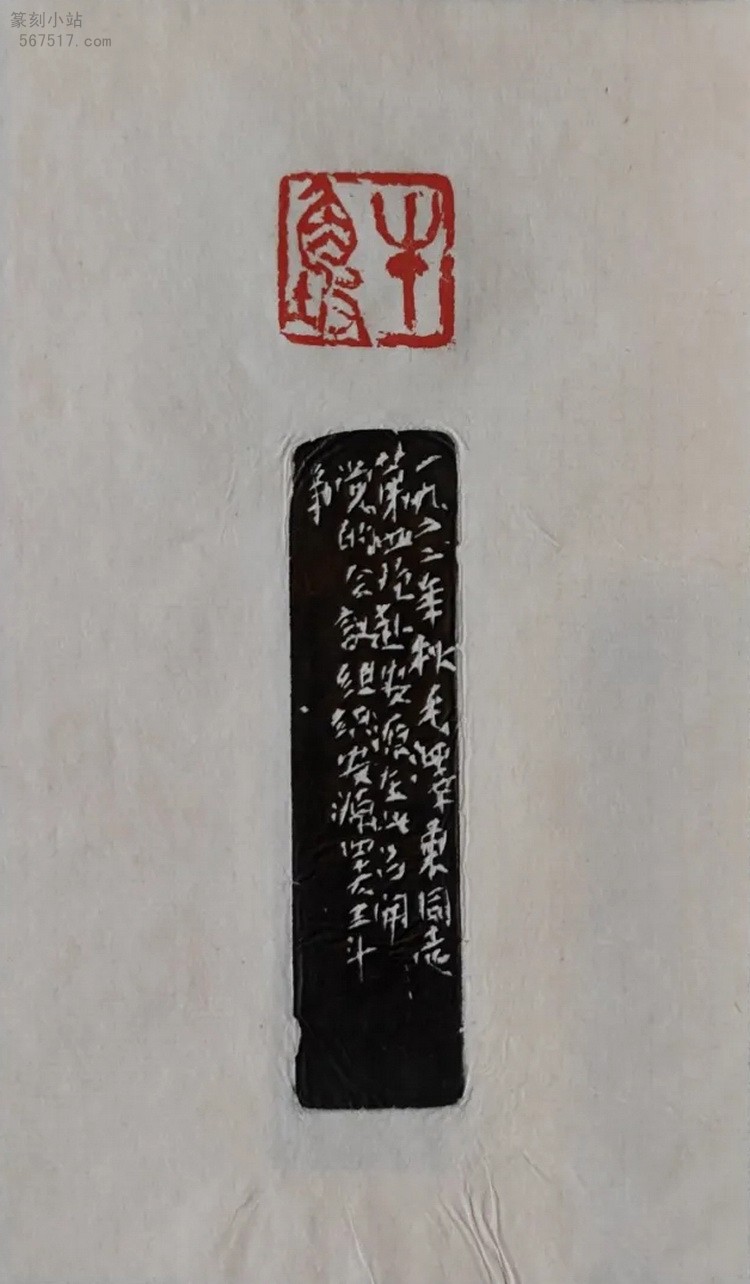 篆刻小站
567517.com
牛
角坡
一九二二年秋毛澤東同志
第四次赴安源在此召開
党的会议组织安源罢工斗
争